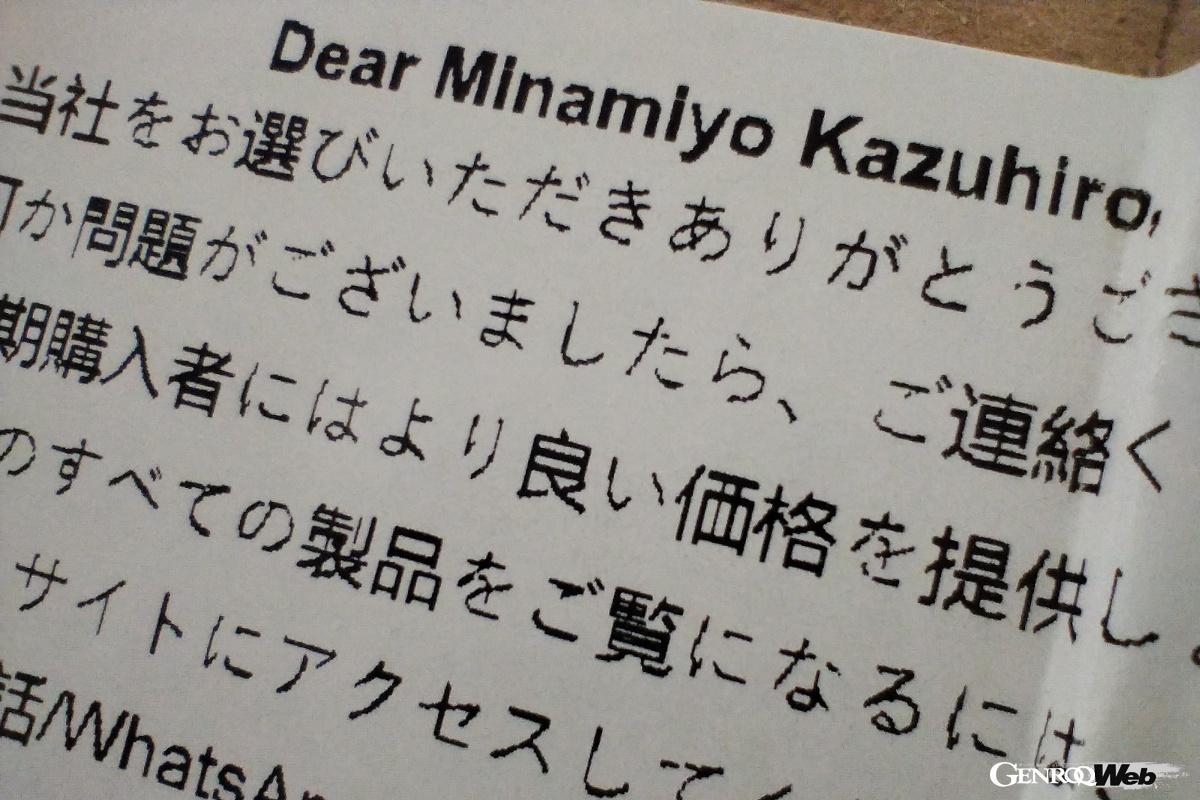 Dear Minamiyo Kazuhiro,
当社をお選びいただきありがとうござ
か問題がございましたら、ご連絡く
期購入者にはより良い価格を提供し
のすべての製品をご覧になるには
サイトにアクセスして
話/WhatsAp
GENROQ Web